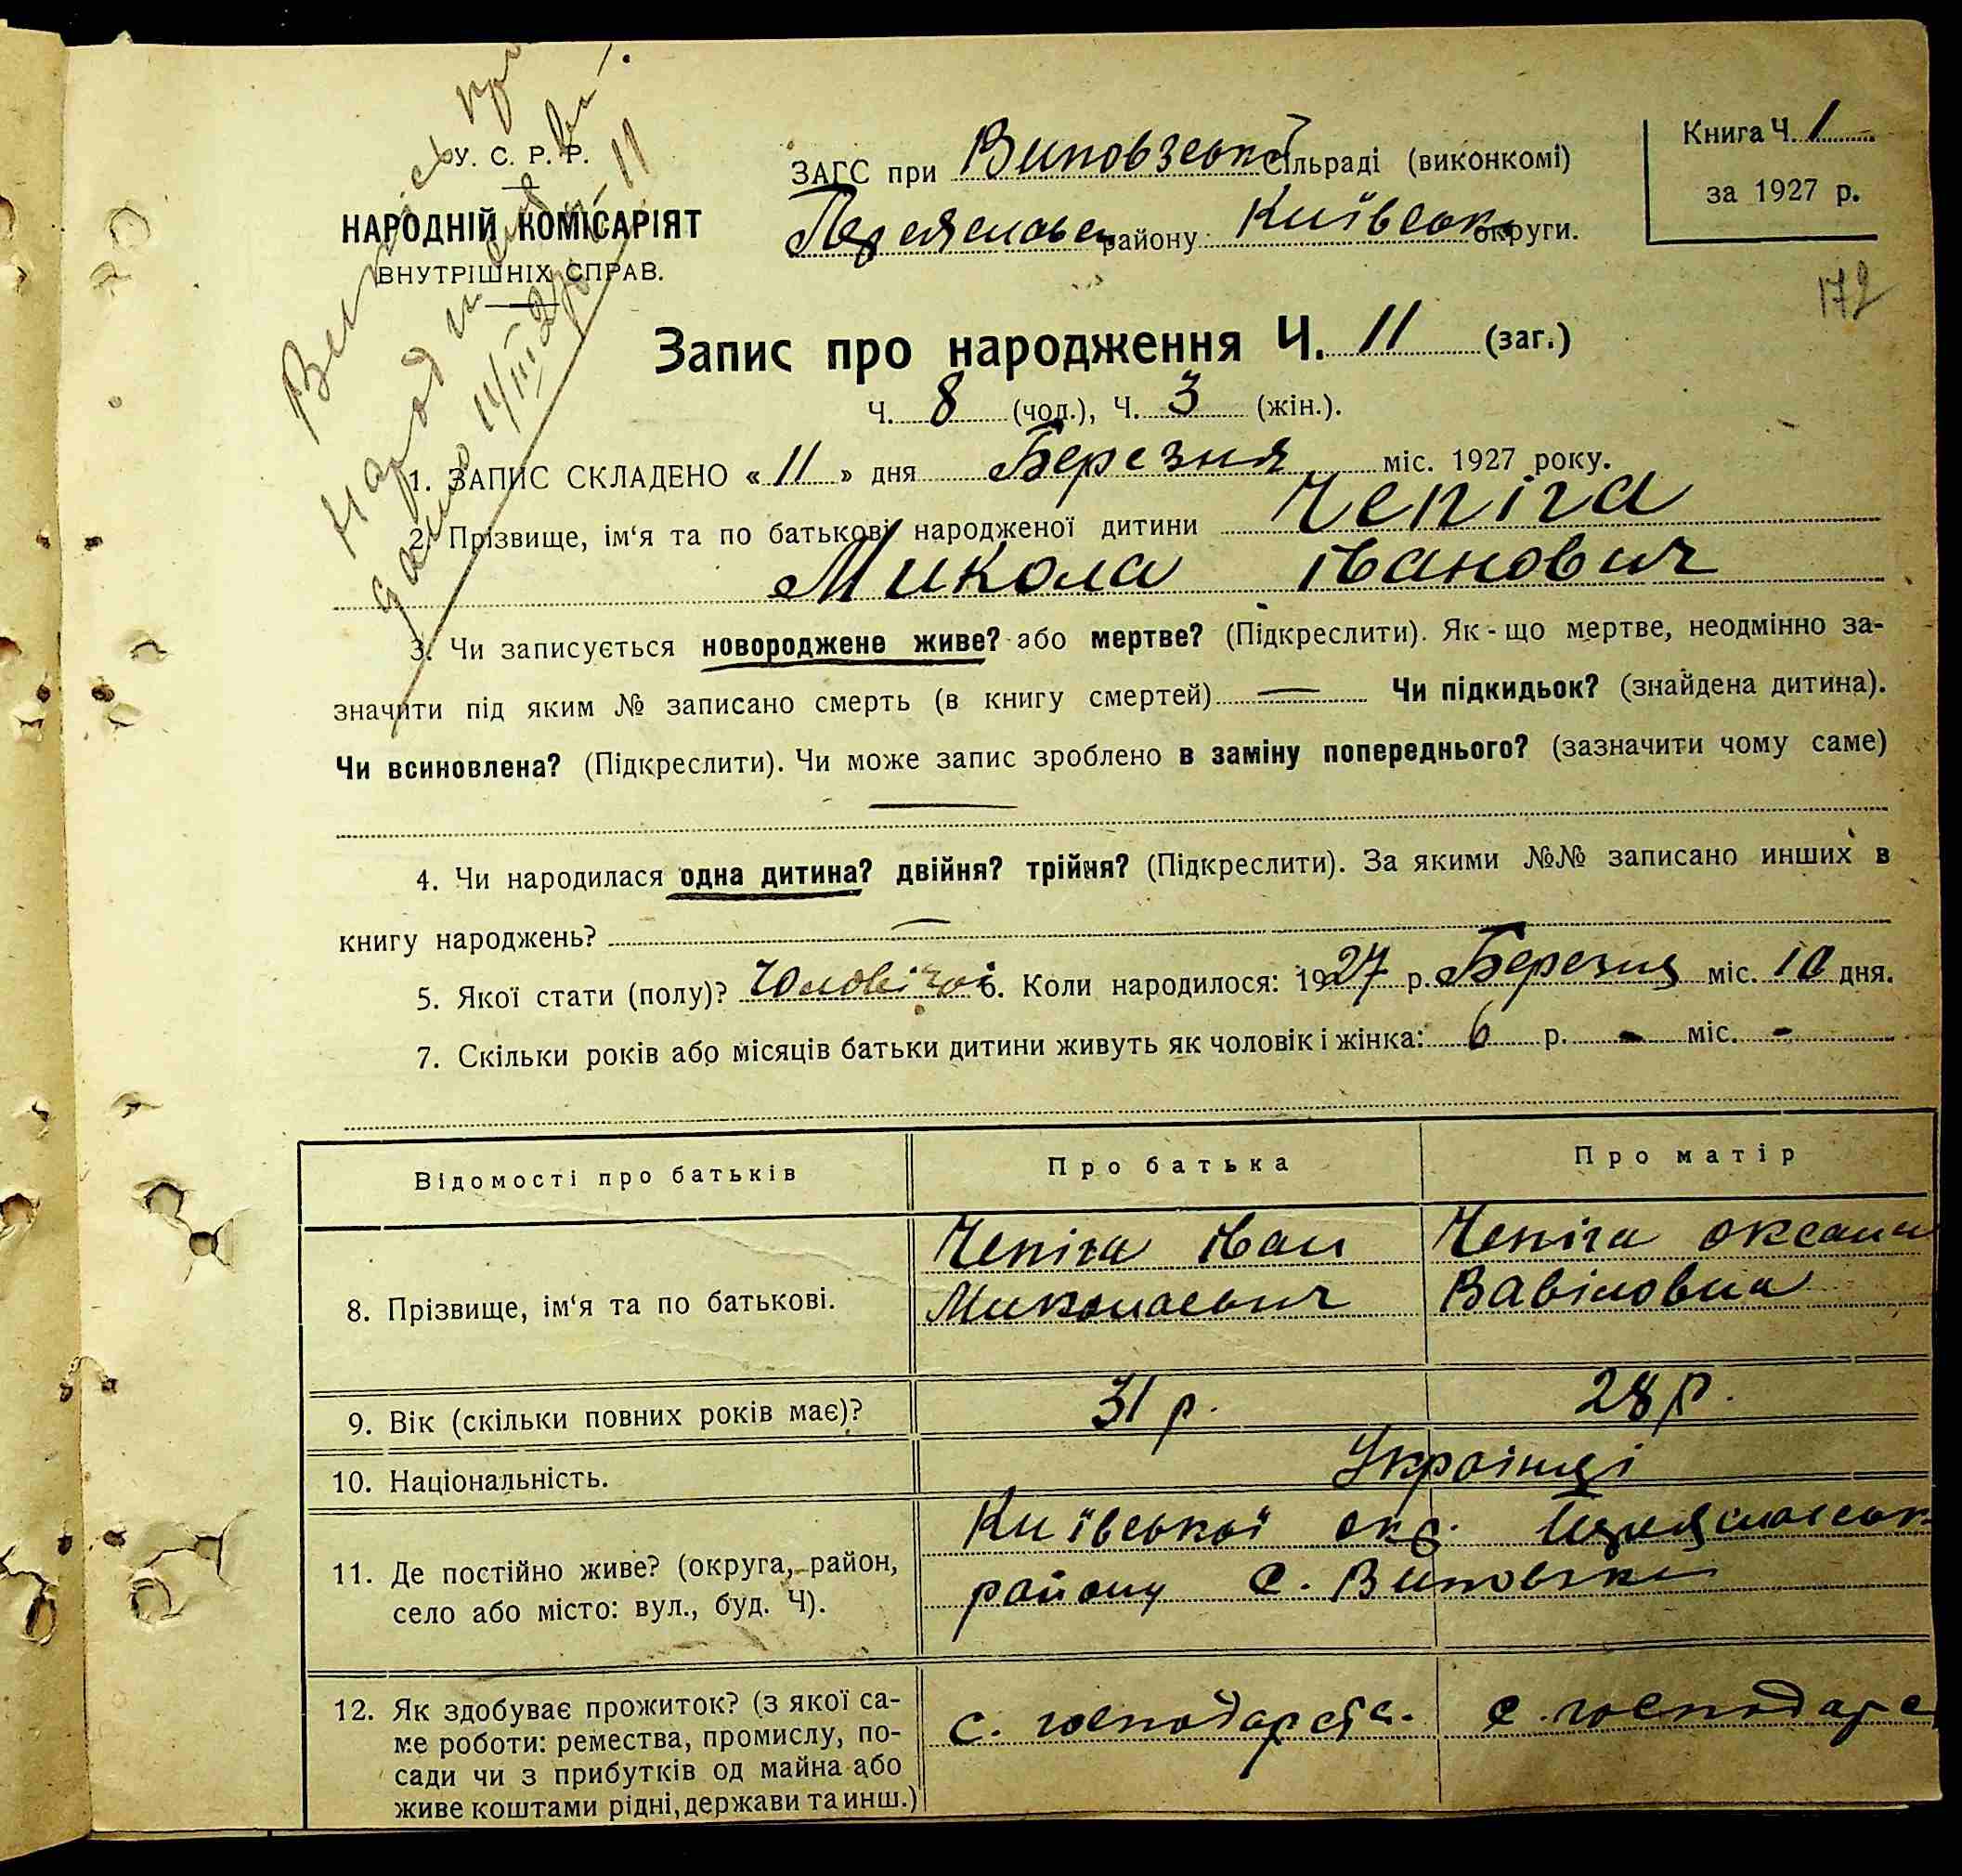 У. С. Р. Р.
НАРОДНІЙ КОМІСАРІЯТ
ВНУТРІШНІХ СПРАВ.
Випись про
народ
дано 11/III 27 р. 11
ЗАГС при Виповзській сільраді (виконкомі)
Переяславськ району Київськ округи.
Книга Ч. 1
за 1927 р.
172
Запис про народження Ч. 11 (заг.)
Ч. 8 (чол.), Ч. 3 (жін.).
1. ЗАПИС СКЛАДЕНО «11» дня Березня міс. 1927 року.
2. Прізвище, ім‘я та по батькові народженої дитини Чепіга
Микола Іванович
3. Чи записується новороджене живе? або мертве? (Підкреслити). Як-що мертве, неодмінно за-
значити під яким № записано смерть (в книгу смертей) — Чи підкидьок? (знайдена дитина).
Чи всиновлена? (Підкреслити). Чи може запис зроблено в заміну попереднього? (зазначити чому саме)
—
4. Чи народилася одна дитина? двійня? трійня? (Підкреслити). За якими №№ записано инших в
книгу народжень? —
5. Якої стати (полу)? Чоловічої 6. Коли народилося: 1927 р. Березня міс. 10 дня.
7. Скільки років або місяців батьки дитини живуть як чоловік і жінка: 6 р. - міс. -
Відомості про батьків Про батька Про матір
8. Прізвище, ім‘я та по батькові. Чепіга Іван Миколаевич Чепіга Оксана Вавіловна
9. Вік (скільки повних років має)? 31 р. 28 р.
10. Національність. Українці
11. Де постійно живе? (округа, район,
село або місто: вул., буд. Ч).
Київської окр. Переяславськ
району с. Виповзки
12. Як здобуває прожиток? (з якої са-
ме роботи: ремества, промислу, по-
сади чи з прибутків од майна або
живе коштами рідні, держави та инш.)
с. господарств. с. господарс